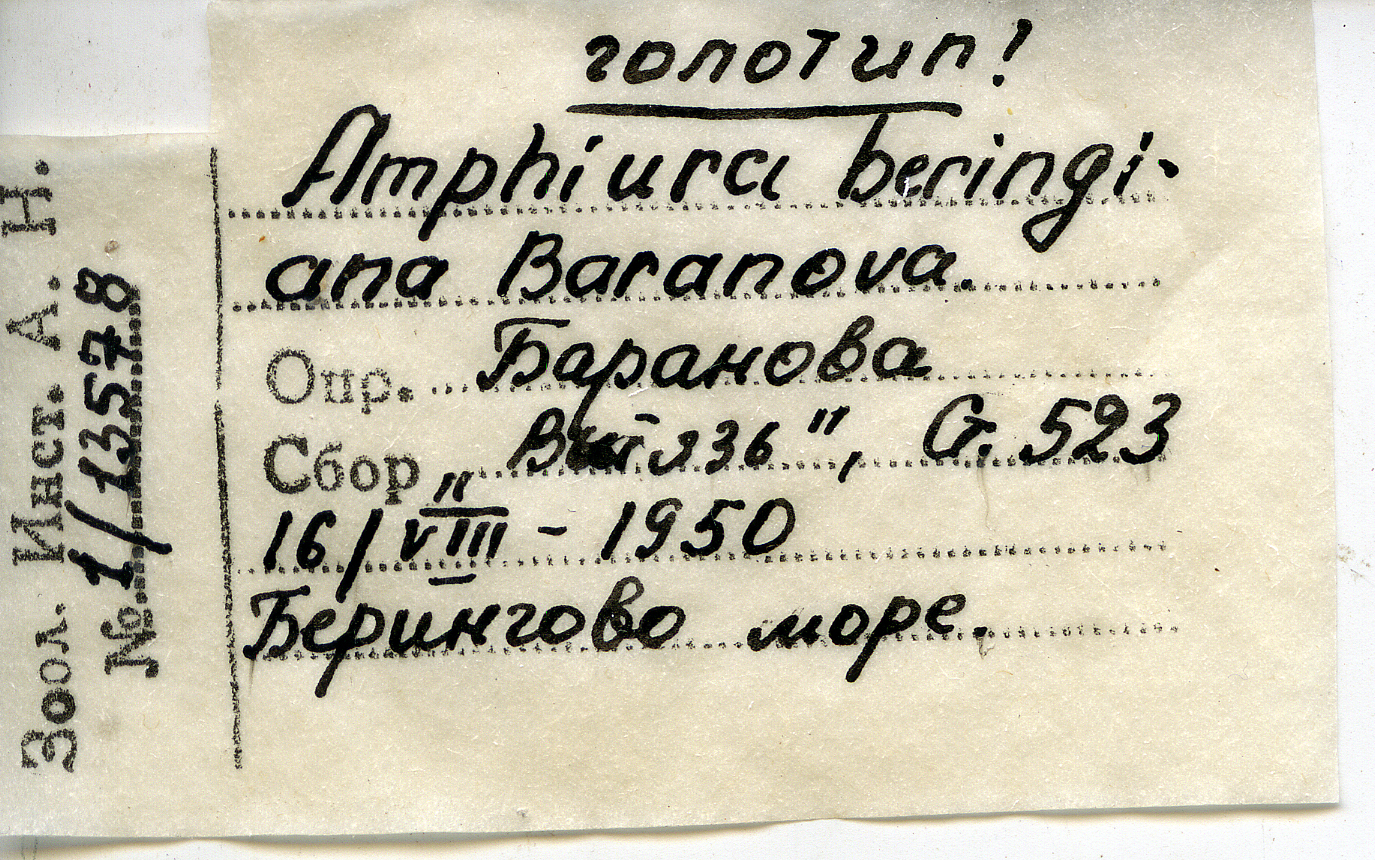 голотип!
Amphiura beringi-
ana Baranova.
Опр. Баранова
Сбор "Витязь", Ст. 523
16/VIII - 1950
Берингово море.
Зоол. Инст. А. Н.
№ 1/13578